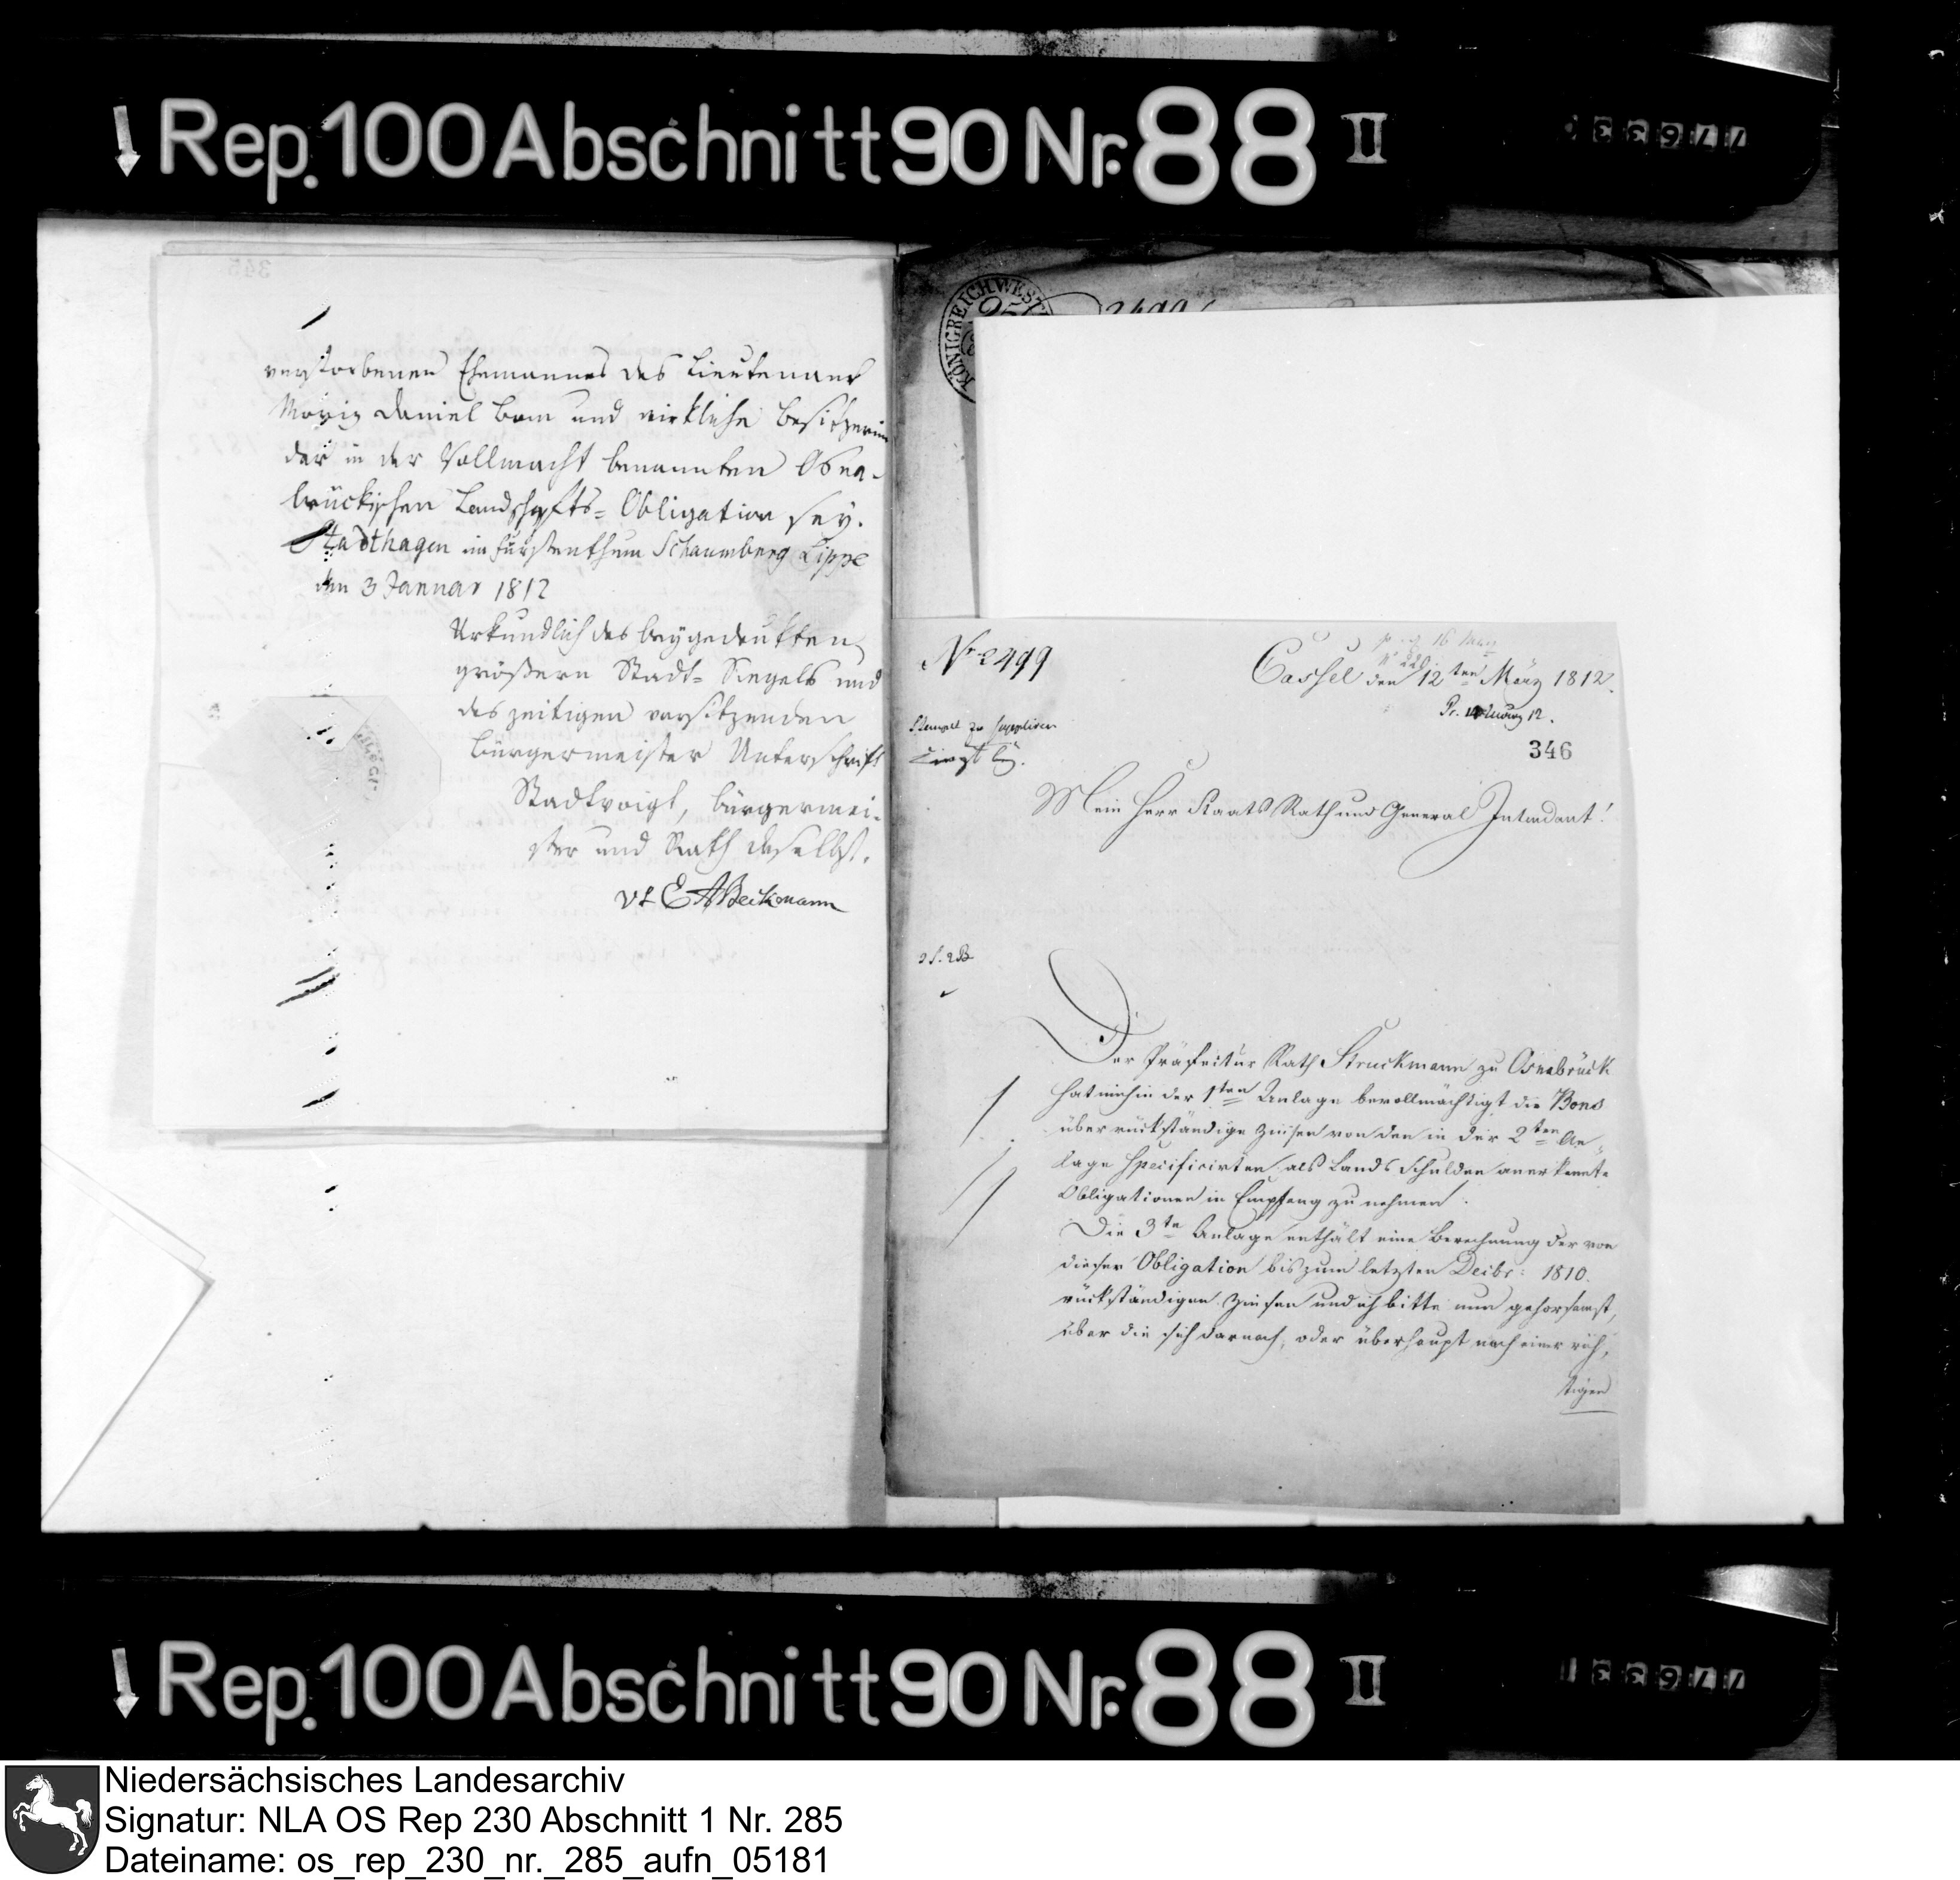 Rep. 100 Abschnitt 90 Nr. 88 II
verstorbenen Ehemannes des Lieutenant
Moriz Daniel Bom und wirkliche Besitzerin
der in der Vollmacht benannten Osna-
brückischen Landschafts= Obligation sey.
Stadthagen im Fürstenthum Schaumberg Lippe
den 3 Januar 1812
Urkundlich des beygedrukten
größern Stadt= Siegels und
des zeitigen vorsitzenden
Bürgermeister Unterschrift
Stadtvoigt, Bürgermei-
ster und Rath daselbst.
vt E A Beckmann
KÖNIGREICH WEST
No 2499
16 März
Cassel den 12ten März 1812.
Pr. 14 März 12.
346
Mein Herr Staats Rath und General Intendant!
Der Präfectur Rath Struckmann zu Osnabrück
hat mich in der 1sten Anlage bevollmächtigt die Bons
über rückständige Zinsen von den in der 2ten An-
lage specificirten als Lands Schulden anerkannt-
Obligationen in Empfang zu nehmen.
Die 3te Anlage enthält eine Berechnung der von
dieser Obligation bis zum letzten Decbr: 1810.
rückständigen Zinsen und ich bitte nun gehorsamst,
über die sich darnach, oder überhaupt nach einer rich-
tigen
Rep. 100 Abschnitt 90 Nr. 88 II
Niedersächsisches Landesarchiv
Signatur: NLA OS Rep 230 Abschnitt 1 Nr. 285
Dateiname: os_rep_230_nr._285_aufn_05181